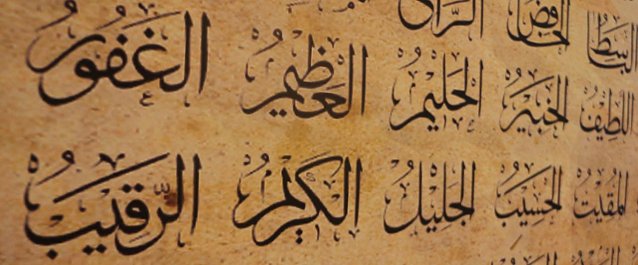 الباسط الخافض
اللطيف الخبير الحليم العظيم الغفور
المقيت الحسيب الجليل الكريم الرقيب